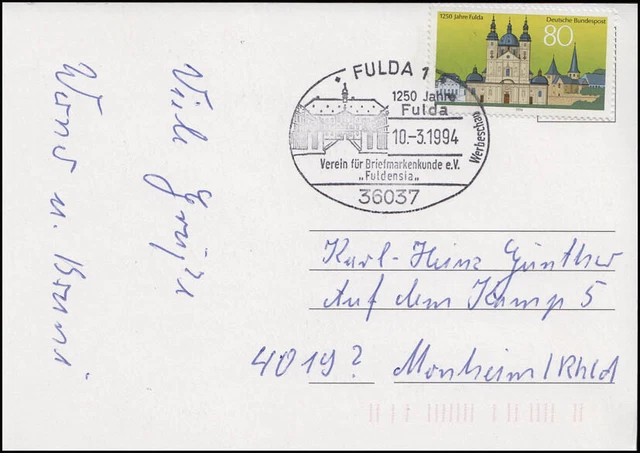 1250 Jahre Fulda
Deutsche Bundespost
80
1994
FULDA 1
1250 Jahre
Fulda
10.-3.1994
Werbeschau
Verein für Briefmarkenkunde e.V.
„Fuldensia"
36037
Viele Grüße
Werner u.
Karl-Heinz Günther
Auf dem Kamp 5
4019? Monheim/Rhld